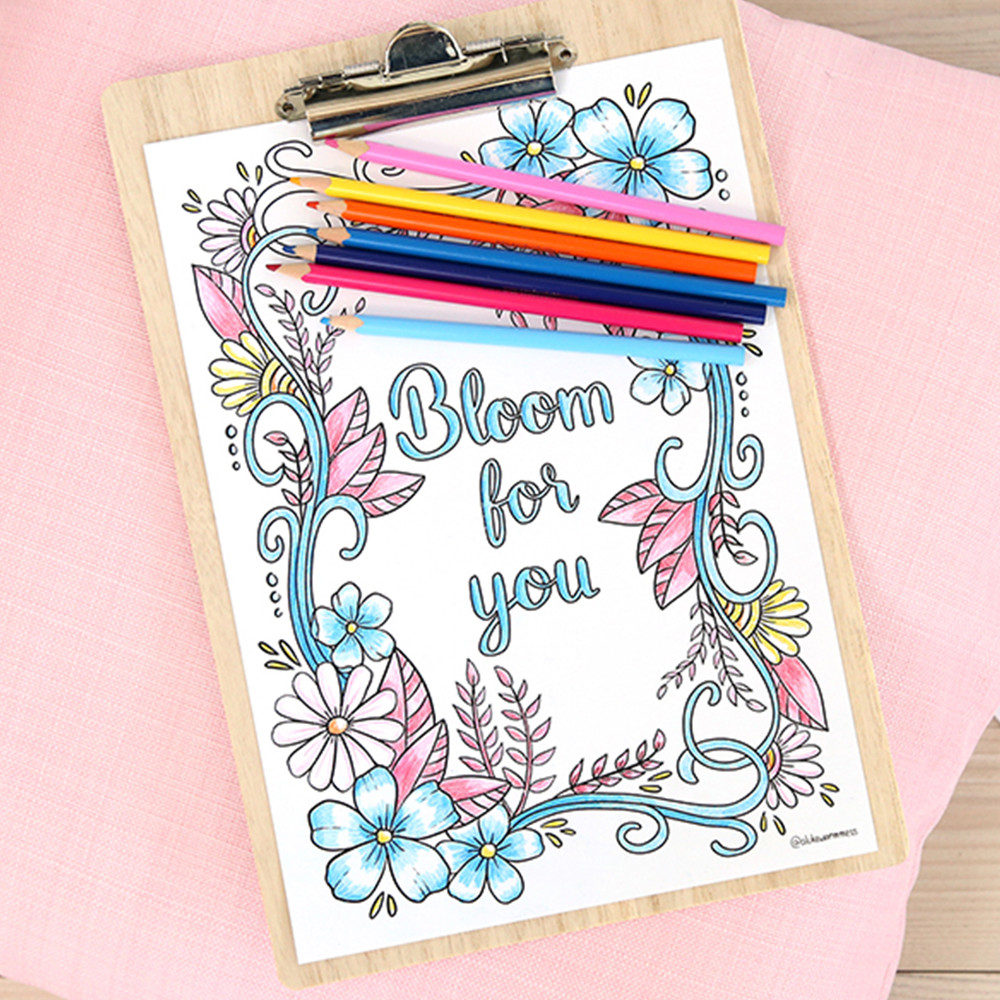 Bloom
for
you